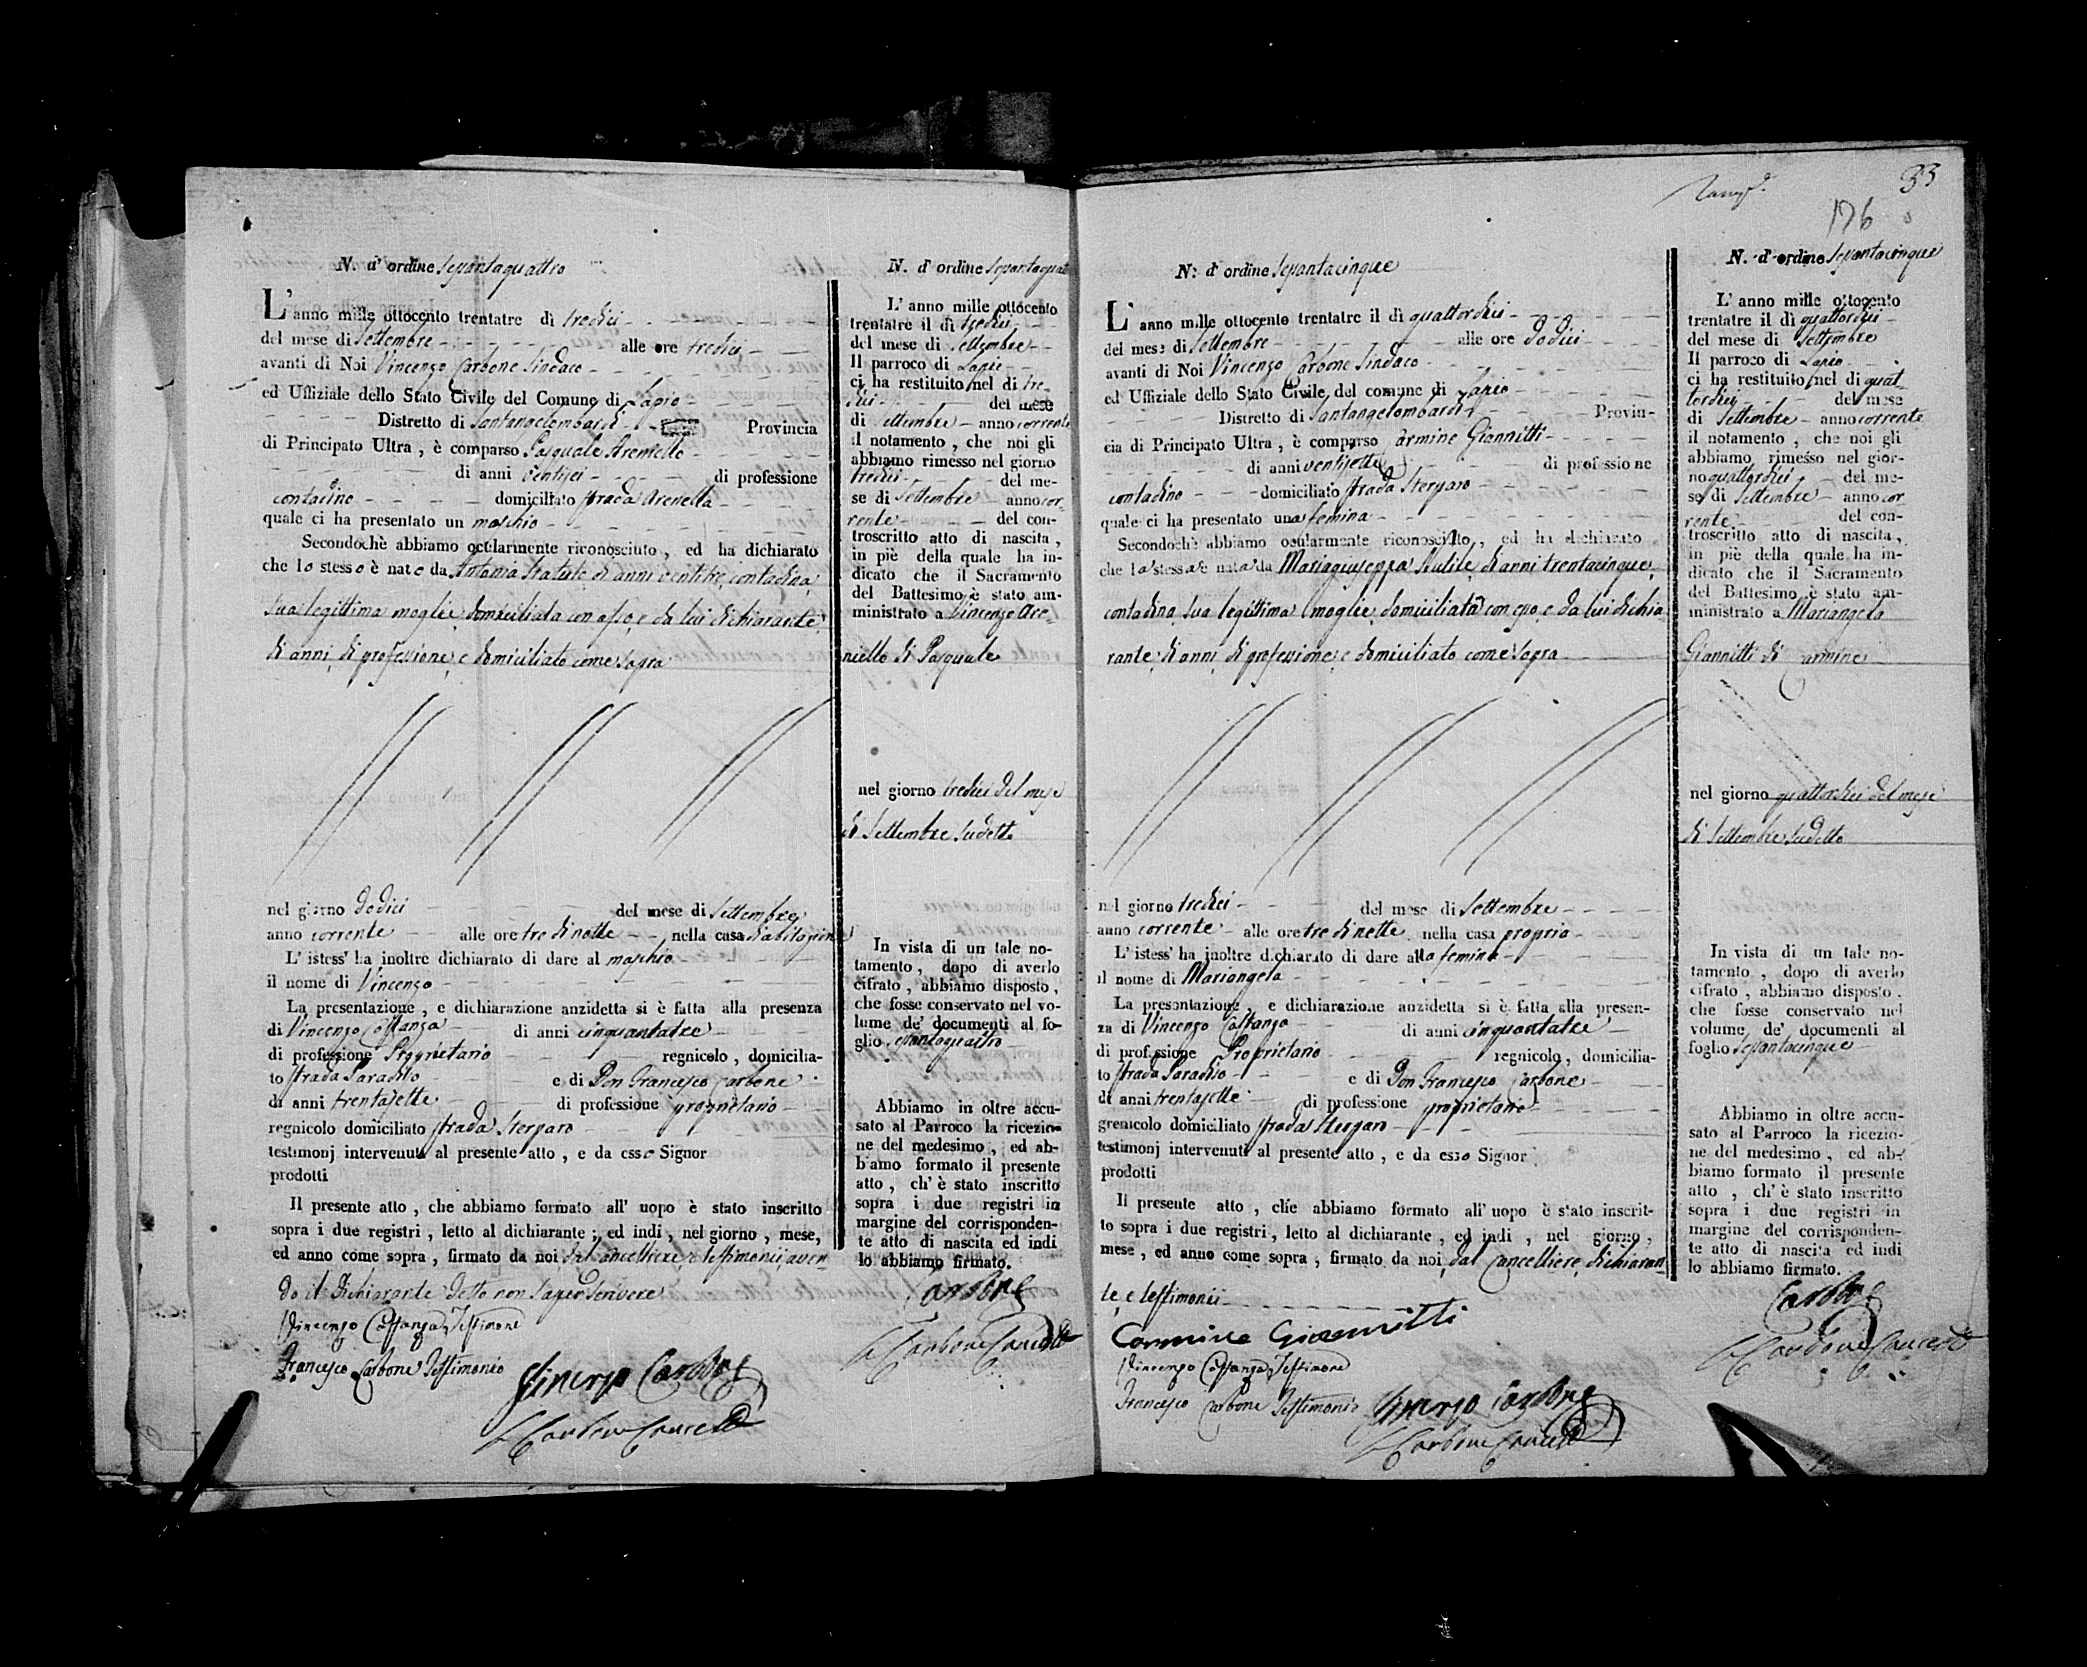 N. d' ordine Sessantaquattro
L' anno mille ottocento trentatre dì tredici
del mese di Settembre alle ore tredici
avanti di Noi Vincenzo Carbone Sindaco
ed Uffiziale dello Stato Civile del Comune di Lapio
Distretto di Santangelombardi Provincia
di Principato Ultra, è comparso Pasquale Areniello
di anni ventisei di professione
contadino domiciliato strada Arenella
quale ci ha presentato un maschio
Secondochè abbiamo ocularmente riconosciuto, ed ha dichiarato
che lo stesso è nato da Antonia di anni ventitre, contadina,
sua legittima moglie, domiciliata con esso, e da lui dichiarante,
di anni, di professione, e domiciliato come sopra
nel giorno dodici del mese di Settembre
anno corrente alle ore tre di notte nella casa d'abitazione
L' istess' ha inoltre dichiarato di dare al maschio
il nome di Vincenzo
La presentazione, e dichiarazione anzidetta si è fatta alla presenza
di Vincenzo Costanza di anni cinquantatre
di professione Proprietario regnicolo, domicilia-
to strada Paradiso e di Don Francesco Carbone
di anni trentasette di professione proprietario
regnicolo domiciliato strada Sterparo
testimonj intervenuti al presente atto, e da esso Signor
prodotti
Il presente atto, che abbiamo formato all' uopo è stato inscritto
sopra i due registri, letto al dichiarante; ed indi, nel giorno, mese,
ed anno come sopra, firmato da noi dal Cancelliere, e testimonii, aven-
do il dichiarante detto non saper scrivere
Vincenzo Costanza Testimone
Francesco Carbone Testimonio
Vincenzo Carbone
Carbone Cancell
N. d' ordine Sessantaquat
L' anno mille ottocento
trentatre il dì tredici
del mese di Settembre
Il parroco di Lapio
ci ha restituito nel dì tre-
dici del mese
di Settembre anno corrente
il notamento, che noi gli
abbiamo rimesso nel giorno
tredici del me-
se di Settembre anno cor-
rente del con-
troscritto atto di nascita,
in piè della quale ha in-
dicato che il Sacramento
del Battesimo è stato am-
ministrato a Vincenzo Are-
niello di Pasquale
nel giorno tredici del mese
di Settembre sudetto
In vista di un tale no-
tamento, dopo di averlo
cifrato, abbiamo disposto,
che fosse conservato nel vo-
lume de' documenti al fo-
glio sessantaquattro
Abbiamo in oltre accu-
sato al Parroco la ricezio-
ne del medesimo, ed ab-
biamo formato il presente
atto, ch' è stato inscritto
sopra i due registri in
margine del corrisponden-
te atto di nascita ed indi
lo abbiamo firmato.
Carbone
Carbone Cancell
33
176
N: d' ordine Sessantacinque
L' anno mille ottocento trentatre il dì quattordici
del mese di Settembre alle ore dodici
avanti di Noi Vincenzo Carbone Sindaco
ed Uffiziale dello Stato Civile del comune di Lapio
Distretto di Santangelombardi Provin-
cia di Principato Ultra, è comparso Carmine Giannitti
di anni ventisette di professione
contadino domiciliato strada Sterparo
quale ci ha presentato una femina
Secondochè abbiamo ocularmente riconosciuto, ed ha dichiarato
che la stessa è nata da Mariagiuseppa di anni trentacinque,
contadina, sua legittima moglie, domiciliata con esso, e da lui dichia
rante, di anni, di professione, e domiciliato come sopra
nel giorno tredici del mese di Settembre
anno corrente alle ore tre di notte nella casa propria
L' istess' ha inoltre dichiarato di dare alla femina
il nome di Mariangela
La presentazione, e dichiarazione anzidetta si è fatta alla presen-
za di Vincenzo Costanza di anni cinquantatre
di professione Proprietario regnicolo, domicilia-
to strada Paradiso e di Don Francesco Carbone
di anni trentasette di professione proprietario
grenicolo domiciliato strada Sterparo
testimonj intervenuti al presente atto, e da esso Signor
prodotti
Il presente atto, che abbiamo formato all' uopo è stato inscrit-
to sopra i due registri, letto al dichiarante, ed indi, nel giorno,
mese, ed anno come sopra, firmato da noi, dal Cancelliere, dichiaran
te, e testimonii
Carmine Giannitti
Vincenzo Costanza Testimone
Francesco Carbone Testimonio
Vincenzo Carbone
Carbone Cancell
N. d' ordine Sessantacinque
L' anno mille ottocento
trentatre il dì quattordici
del mese di Settembre
Il parroco di Lapio
ci ha restituito nel dì quat-
tordici del mese
di Settembre anno corrente
il notamento, che noi gli
abbiamo rimesso nel gior-
no quattordici del me-
se di Settembre anno cor
rente del con-
troscritto atto di nascita,
in piè della quale ha in-
dicato che il Sacramento
del Battesimo è stato am-
ministrato a Mariangela
Giannitti di Carmine
nel giorno quattordici del mese
di Settembre sudetto
In vista di un tale no-
tamento, dopo di averlo
cifrato, abbiamo disposto,
che fosse conservato nel
volume de' documenti al
foglio sessantacinque
Abbiamo in oltre accu-
sato al Parroco la ricezio-
ne del medesimo, ed ab-
biamo formato il presente
atto, ch' è stato inscritto
sopra i due registri in
margine del corrisponden-
te atto di nascita ed indi
lo abbiamo firmato.
Carbone
Carbone Cancell